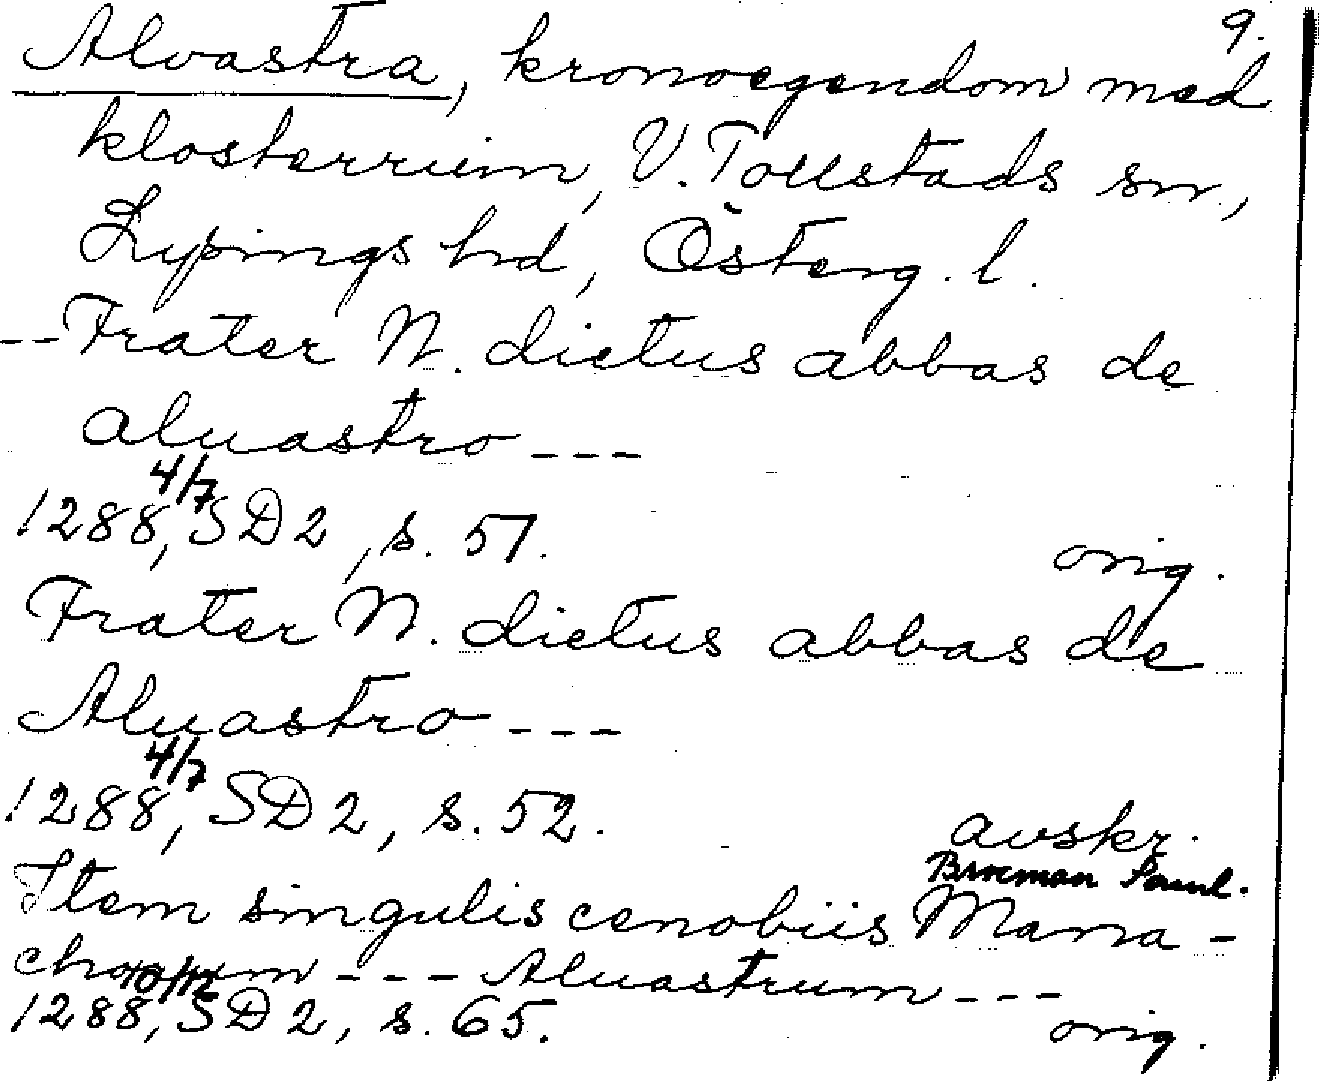 9.
Alvastra, kronoegendom med
klosterruin, V. Tollstads sn,
Lysings hd, Österg. l.
-- Frater N. dictus abbas de
aluastro ---
4/7
1288, SD 2, s. 51.
orig.
Frater N. dictus abbas de
Aluastro ---
4/7
1288, SD 2, s. 52.
avskr.
Broeman Saml.
Item singulis cenobiis Mona-
chorum --- Aluastrum ---
10/12
1288, SD 2, s. 65.
orig.